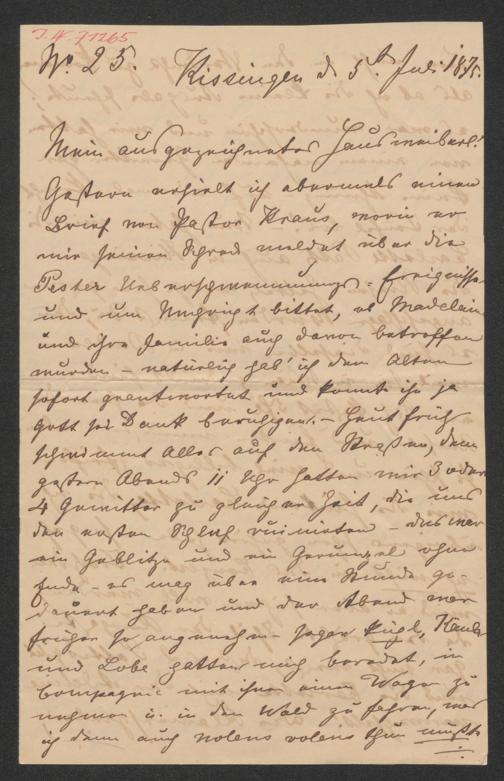 I.N. 71265
No. 25. Kissingen d. 5t. Juli 1875.
Mein ausgezeichnetes Hausweiberl!
Gestern erhielt ich abermals einen
Brief von Pastor Kraus, worin er
mir seinen Schreck meldet über die
Pester Ueberschwemmungs-Ereignisse
und um Nachricht bittet, ob Madelain
und ihre Familie auch davon betroffen
wurden – natürlich hab' ich dem Alten
sofort geantwortet und konnte ihn ja
Gott sei Dank beruhigen. – Heut früh
schwimmt Alles auf den Straßen, denn
gestern Abends 11 Uhr hatten wir 3 oder
4 Gewitter zu gleicher Zeit, die uns
den ersten Schlaf ruinirten – das war
ein Geblitze und ein Gerunzel ohne
Ende – es mag über eine Stunde ge-
dauert haben und der Abend war
früher so angenehm. Sogar
und Lobe hatten mich beredet, in
Compagnie mit ihnen einen Wagen zu
nehmen u. in den Wald zu fahren, was
ich denn auch nolens volens thun mußte